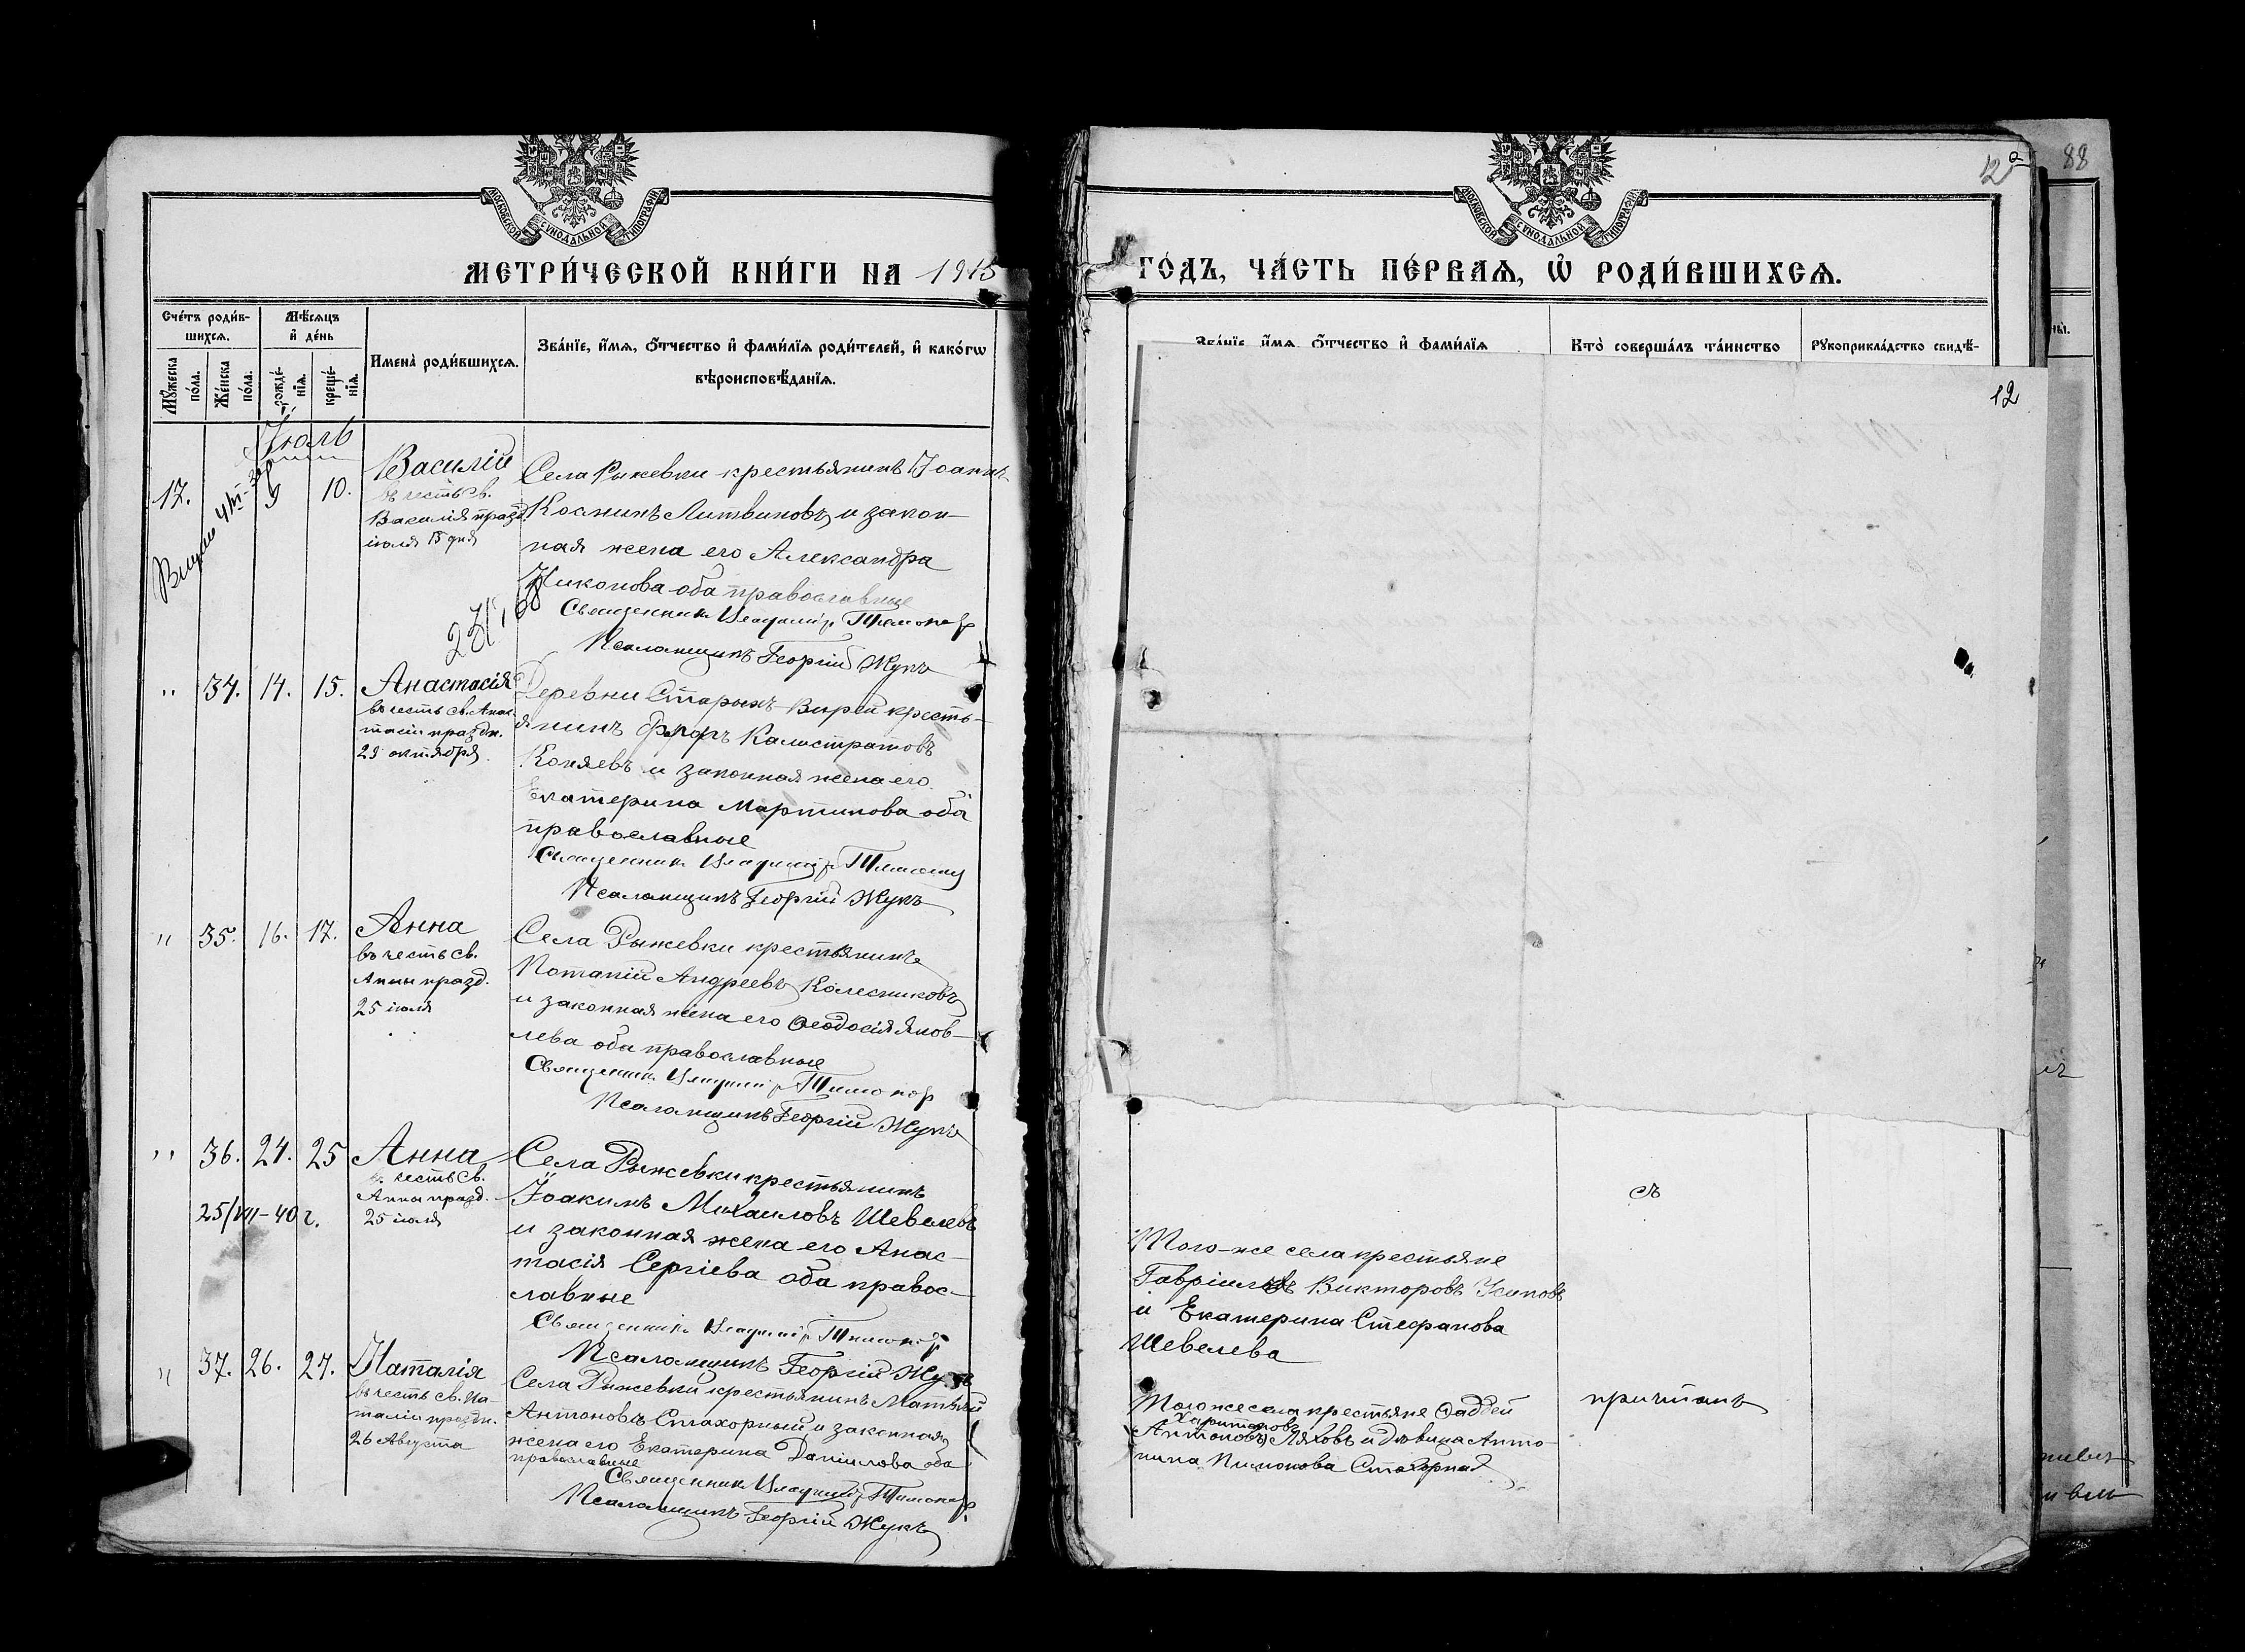 МОСКОВСКОЙ СѴНОДАЛЬНОЙ ТИПОГРАФІИ
МЕТРИ́ЧЕСКОЙ КНИ́ГИ НА 1915
Сче́тъ роди́в-
шихсѧ.
Мѣ́сѧцъ
и҆ де́нь
Мꙋ́жеска
по́ла.
Же́нска
по́ла.
рожде́-
нїѧ.
креще́-
нїѧ.
Имена̀ роди́вшихсѧ.
Зва́нїе, и҆́мѧ, ѻ҆́тчество и҆ фами́лїѧ роди́телей, и҆ како́гѡ
вѣроисповѣ́данїѧ.
Іюль
17.
9
10.
Василій
въ честь св.
Василія празд.
іюля 15 дня
Села Рыжевки крестьянинъ Іоаннъ
Косминъ Литвиновъ и закон-
ная жена его Александра
Никонова оба православные
Священникъ
Псаломщикъ Георгій Жукъ
" 34. 14. 15.
Анастасія
въ честь св. Анас-
тасіи праздн.
29 октября
Деревни Старыхъ-Вирей кресть-
янинъ Ѳеодоръ Калистратовъ
Коняевъ и законная жена его
Екатерина Мартинова оба
православные
Священникъ
Псаломщикъ Георгій Жукъ
" 35. 16. 17.
Анна
въ честь св.
Анны празд.
25 іюля
Села Рыжевки крестьянинъ
Потапій Андреевъ Колесниковъ
и законная жена его Ѳеодосія Яков-
лева оба православные
Священникъ
Псаломщикъ Георгій Жукъ
" 36. 24. 25
25/VII-40 г.
Анна
въ честь св.
Анны празд.
25 іюля
Села Рыжевки крестьянинъ
Іоакимъ Михаиловъ Шевелевъ
и законная жена его Анас-
тасія Сергіева оба правос-
лавные
Священникъ
Псаломщикъ Георгій Жукъ
" 37. 26. 27.
Наталія
въ честь св. На-
таліи праздн.
26 Августа
Села Рыжевки крестьянинъ Матѳей
Антоновъ Стахорный и законная
жена его Екатерина Даніилова оба
православные
Священникъ
Псаломщикъ Георгій Жукъ
12
88
МОСКОВСКОЙ СѴНОДАЛЬНОЙ ТИПОГРАФІИ
ГО́ДЪ, ЧА́СТЬ ПЕ́РВАѦ, Ѡ҆ РОДИ́ВШИХСѦ.
Зва́нїе, и҆́мѧ, ѻ҆́тчество и҆ фами́лїѧ
Кто̀ соверша́лъ та́инство
Рꙋкоприкла́дство свидѣ́-
12
съ
Того-же села крестьяне
Гавріилъ Викторовъ Усиковъ
и Екатерина Стефанова
Шевелева
Того же села крестьяне Ѳаддей
Харитоновъ
Антоновъ Ляховъ и дѣвица Анто-
нина Пимонова Стахорная
причтомъ